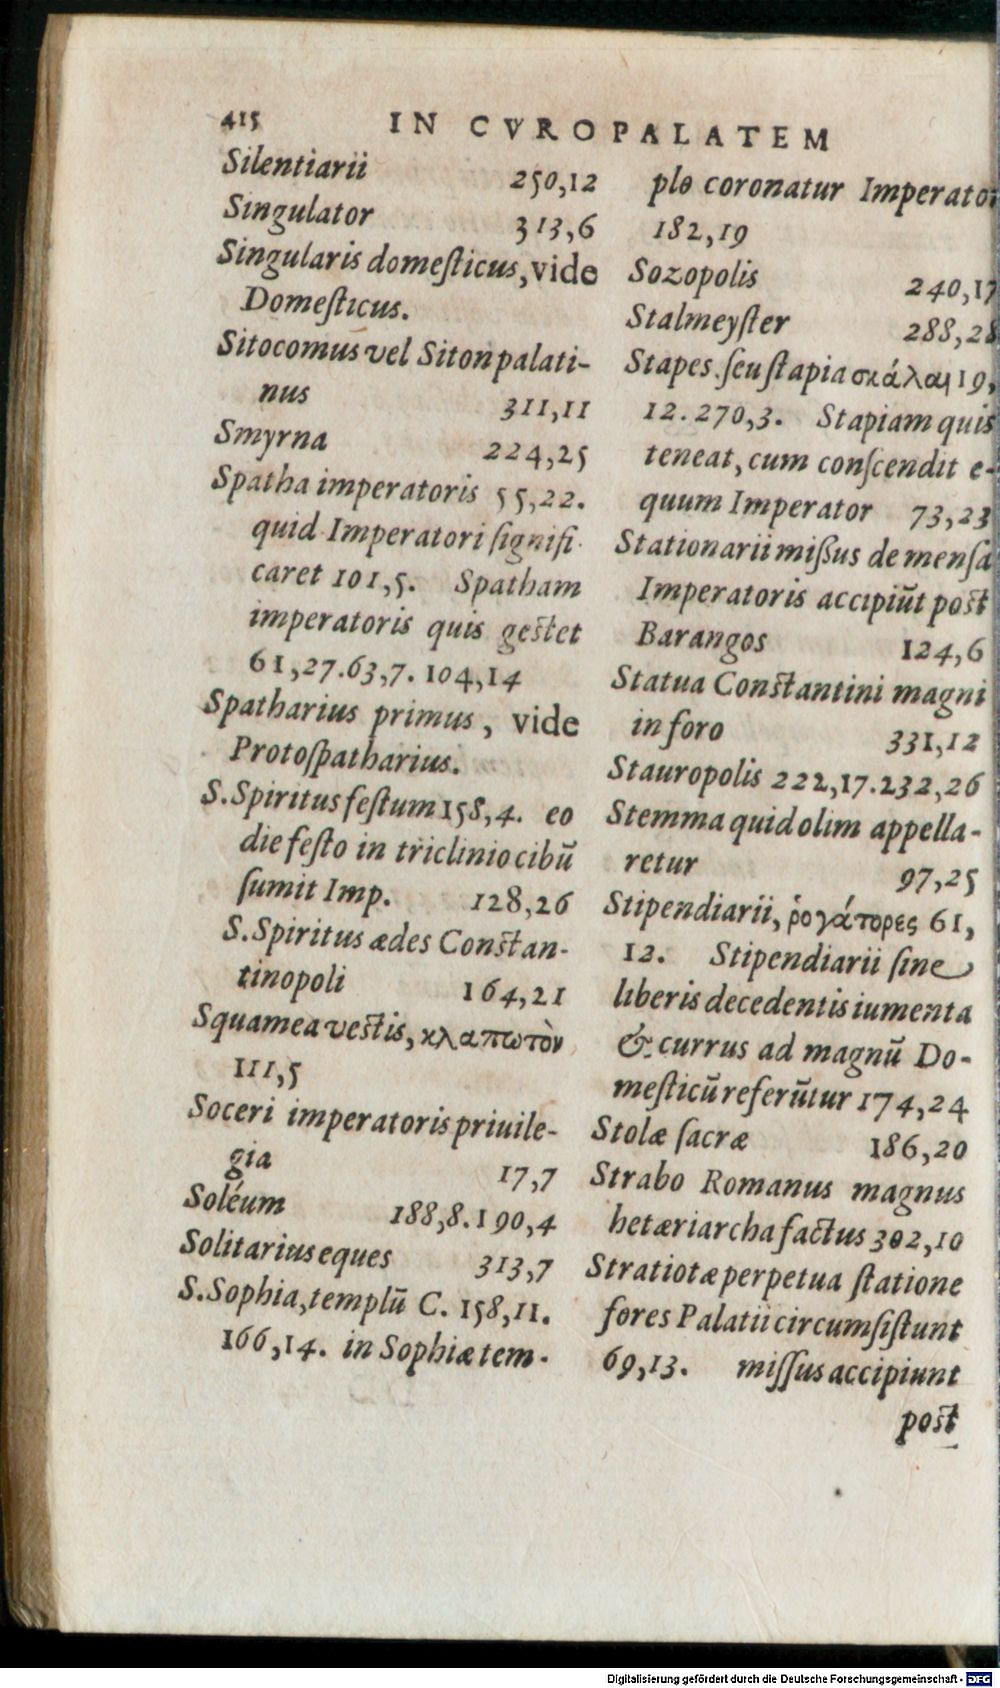 415 IN CVROPALATEM
Silentiarii 250,12
Singulator 313,6
Singularis domeſticus, vide
Domeſticus.
Sitocomus vel Siton palati-
nus 311,11
Smyrna 224,25
Spatha imperatoris 55,22.
quid Imperatori ſignifi-
caret 101,5. Spatham
imperatoris quis geſtet
61,27.63,7.104,14
Spatharius primus, vide
Protoſpatharius.
S. Spiritus feſtum 158,4. eo
die feſto in triclinio cibū
ſumit Imp. 128,26
S. Spiritus ædes Conſtan-
tinopoli 164,21
Squamea veſtis, κλαπωτὸν
111,5
Soceri imperatoris priuile-
gia 17,7
Soléum 188,8.190,4
Solitarius eques 313,7
S. Sophia, templū C. 158,11.
166,14. in Sophiæ tem-
plo coronatur Imperator
182,19
Sozopolis 240,17
Stalmeyſter 288,28
Stapes ſeu ſtapia σκάλαι 19,
12.270,3. Stapiam quis
teneat, cum conſcendit e-
quum Imperator 73,23
Stationarii miſsus de menſa
Imperatoris accipiūt poſt
Barangos 124,6
Statua Conſtantini magni
in foro 331,12
Stauropolis 222,17.232,26
Stemma quid olim appella-
retur 97,25
Stipendiarii, ῥογάτορες 61,
12. Stipendiarii ſine
liberis decedentis iumenta
& currus ad magnū Do-
meſticū referūtur 174,24
Stolæ ſacræ 186,20
Strabo Romanus magnus
hetæriarcha factus 302,10
Stratiotæ perpetua ſtatione
fores Palatii circumſiſtunt
69,13. miſſus accipiunt
poſt
Digitalisierung gefördert durch die Deutsche Forschungsgemeinschaft - DFG